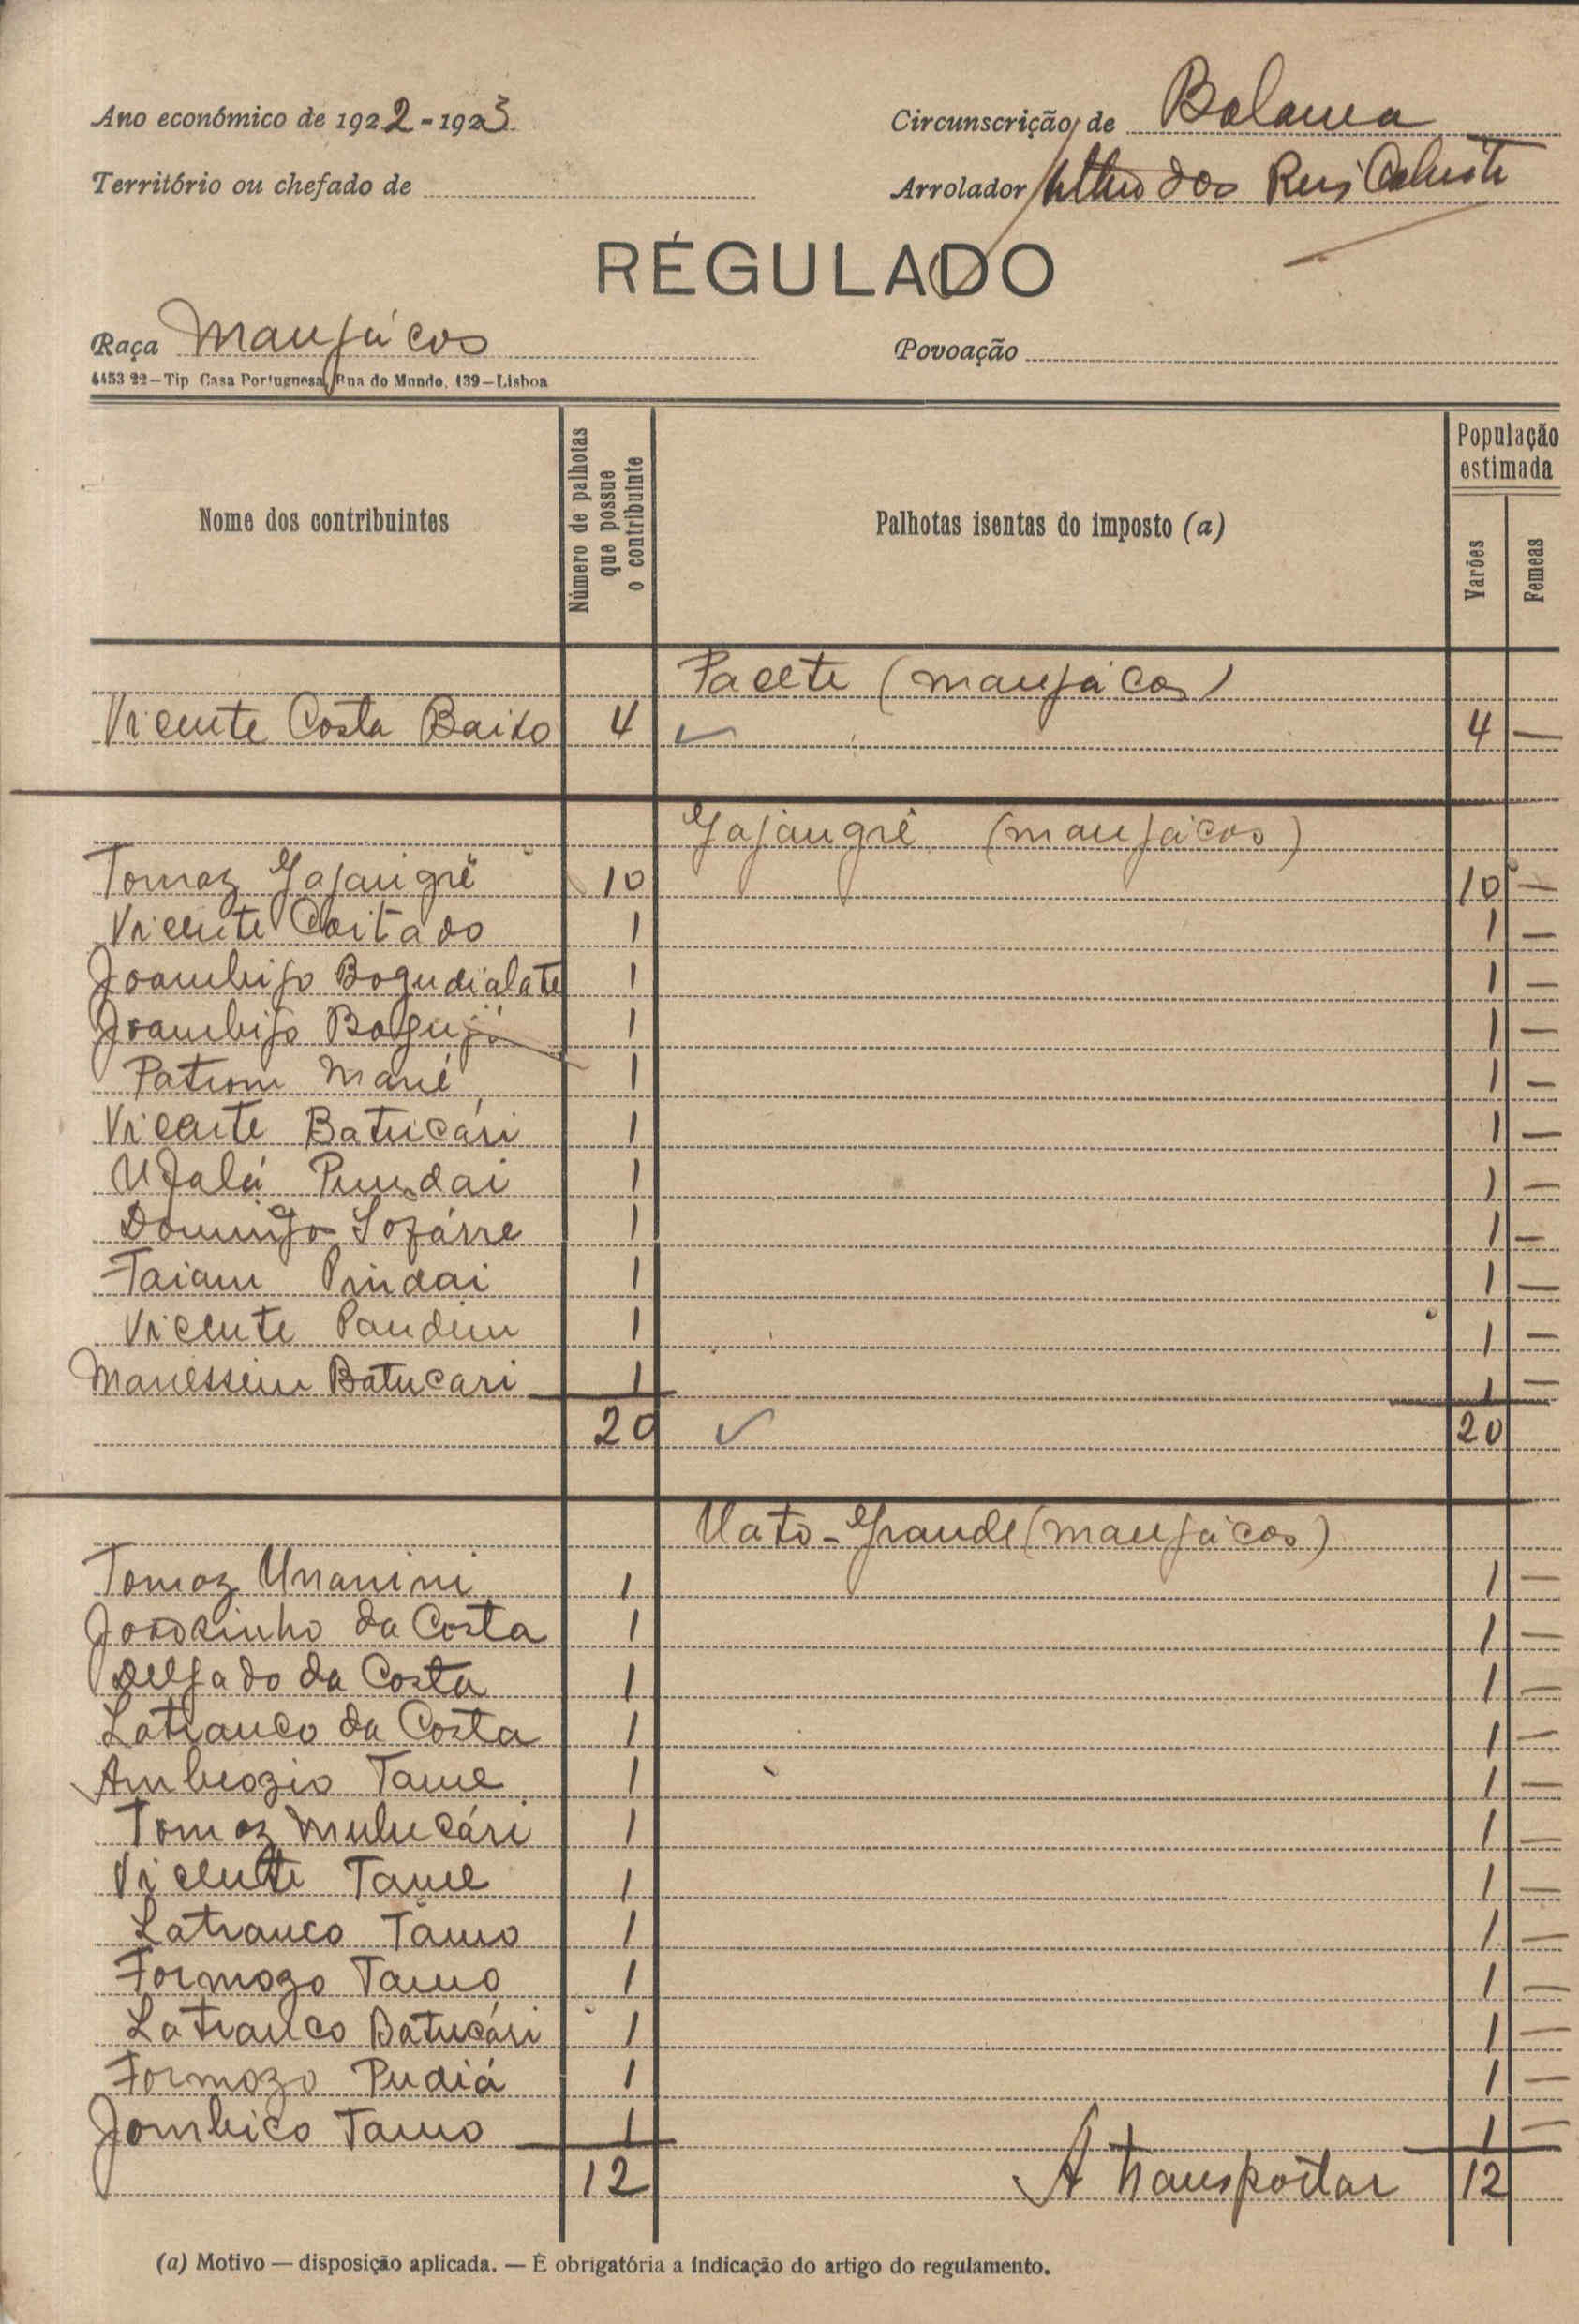 Ano económico de 1922-1923
Circunscrição de Bolama
Território ou chefado de
Arrolador dos Reis
RÉGULADO
Raça Manjácos
Povoação
4453 22—Tip Casa Portuguesa, Rua do Mundo, 139—Lisboa
Nome dos contribuintes
Número de palhotas que possue o contribuinte
Palhotas isentas do imposto (a)
População estimada
Varões
Femeas
Pacete (manjácos)
Vicente Costa Baixo 4 4 —
Gajangrê (manjácos)
Tomaz Gajangrê 10 10 —
Vicente Coitado 1 1 —
Joambijo Bogudialate 1 1 —
Joambijo 1 1 —
Patrom Mané 1 1 —
Vicente Batucári 1 1 —
Ufalá Pundai 1 1 —
Domingo 1 1 —
Taiam Pindai 1 1 —
Vicente Pandim 1 1 —
Manessim Batucari 1 1 —
20 20
Mato-Grande (manjácos)
Tomaz Unanini 1 1 —
Joãosinho da Costa 1 1 —
Delgado da Costa 1 1 —
Latranco da Costa 1 1 —
Ambrozio Tame 1 1 —
Tomaz Mulucári 1 1 —
Vicente Tame 1 1 —
Latranco Tamo 1 1 —
Formozo Tamo 1 1 —
Latranco Batucári 1 1 —
Formozo Pudiá 1 1 —
Jombico Tamo 1 1 —
12 A transportar 12
(a) Motivo — disposição aplicada. — É obrigatória a indicação do artigo do regulamento.